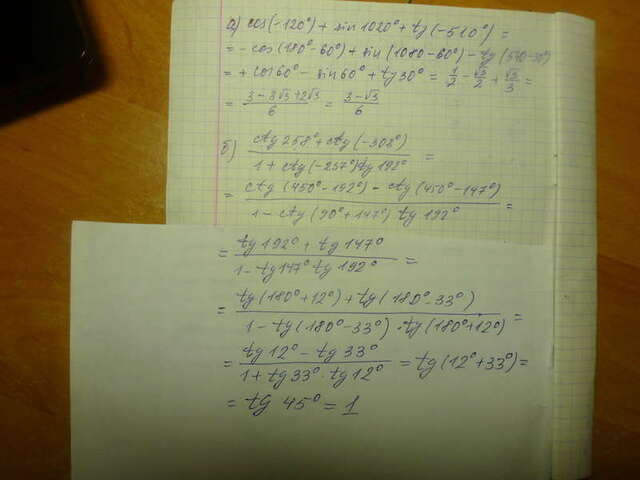 а) cos(-120°) + sin 1020° + tg(-510°) =
= - cos(180°-60°) + sin(1080-60°) - tg(540-30°)
= + cos 60° - sin 60° + tg 30° = 1/2 - √3/2 + √3/3 =
= (3 - 3√3 + 2√3)/6 = (3-√3)/6
б) (ctg 258° + ctg(-303°))/(1 + ctg(-237°) tg 192°) =
= (ctg(450°-192°) - ctg(450°-147°))/(1 - ctg(90°+147°) tg 192°) =
= (tg 192° + tg 147°)/(1 - tg 147° tg 192°) =
= (tg(180°+12°) + tg(180°-33°))/(1 - tg(180°-33°) · tg(180°+12°)) =
= (tg 12° - tg 33°)/(1 + tg 33° · tg 12°) = tg(12°+33°) =
= tg 45° = 1